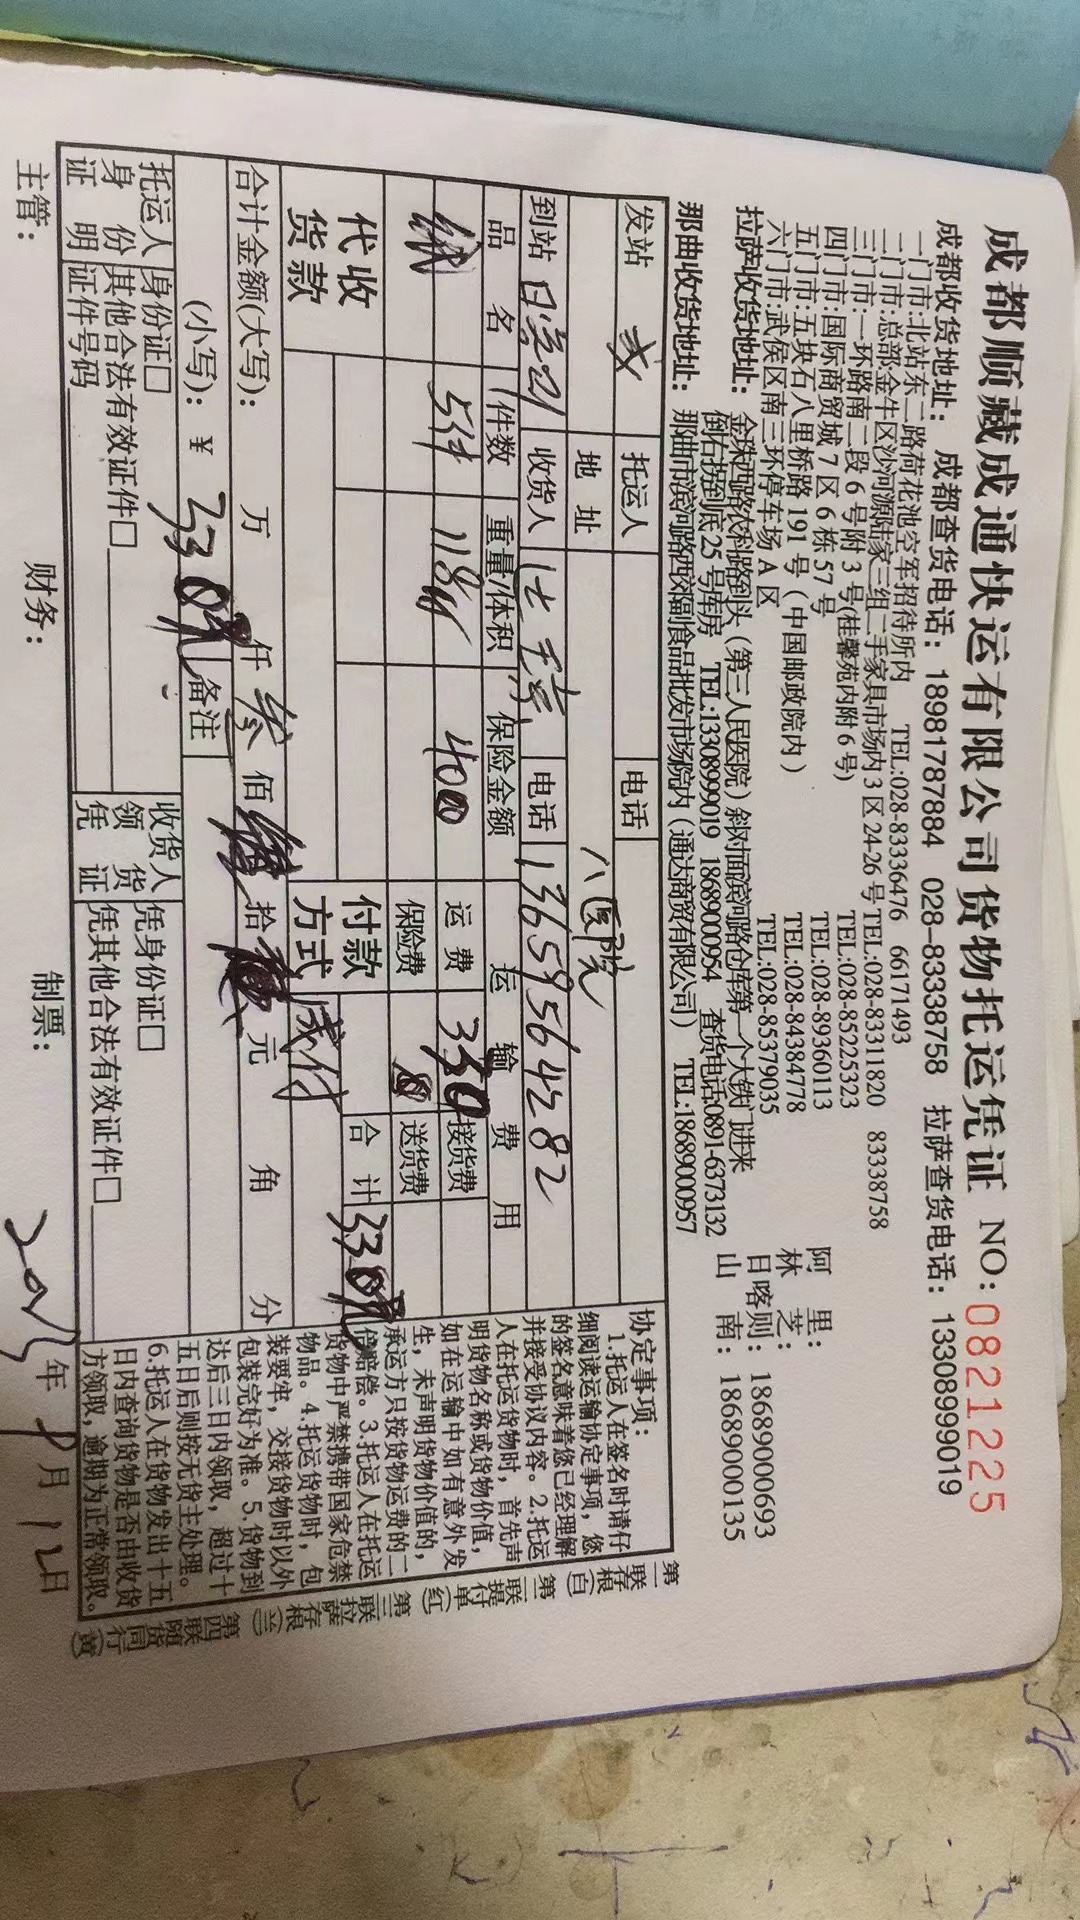 成都顺藏成通快运有限公司货物托运凭证 NO:0821225
成都收货地址: 成都查货电话:18981787884 028-83338758 拉萨查货电话:13308999019
一门市:北站东二路荷花池空军招待所内 TEL:028-83336476 66171493
二门市:总部金牛区沙河源陆家三组二手家具市场内3区24-26号 TEL:028-83311820 83338758
三门市:一环路南二段6号附3号(桂馨苑内附6号) TEL:028-85225323
四门市:国际商贸城7区6栋57号 TEL:028-89360113
五门市:五块石八里桥路191号(中国邮政院内) TEL:028-84384778
六门市:武侯区南三环停车场A区 TEL:028-85379035
阿里:
林芝:
日喀则:18689000693
山南:18689000135
拉萨收货地址: 金珠西路农科路到头(第三人民医院)斜对面滨河路仓库第一个大铁门进来
倒右拐到底25号库房 TEL:13308999019 18689000954 查货电话:0891-6373132
那曲收货地址: 那曲市滨河路西郊副食品批发市场院内(通达商贸有限公司) TEL:18689000957
发站 托运人 电话
地址 八医院
到站 收货人 电话 13659564282
品名 件数 重量/体积 保险金额 运输费用
5件 400 运费 330 接货费
保险费 送货费
代收货款 付款方式 合计 330元
合计金额(大写): 万 仟 叁佰 拾 元 角 分
(小写):¥ 330元 备注
托运人身份证明 身份证□ 收货人领货凭证 凭身份证□
其他合法有效证件□ 凭其他合法有效证件□
证件号码
主管: 财务: 制票: 年 月12日
协定事项:
1.托运人在签名时请仔
细阅读运输协定事项,您
的签名意味着您已经理解
并接受协议内容。2.托运
人在托运货物时,首先声
明货物名称或货物价值,
如在运输中如有意外发
生,未声明货物价值的,
承运方只按货物运费的二
倍赔偿。3.托运人在托运
货物中严禁携带国家危禁
物品。4.托运货物时,包
装要牢,交接货物时以外
包装完好为准。5.货物到
达后三日内领取,超过十
五日后则按无货主处理。
6.托运人在货物发出十五
日内查询货物是否由收货
方领取,逾期为正常领取。
第一联存根(白)
第二联提付单(红)
第三联拉萨存根(兰)
第四联随货同行(黄)